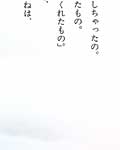 しちゃったの。
たもの。
くれたもの』。
、
ねは、